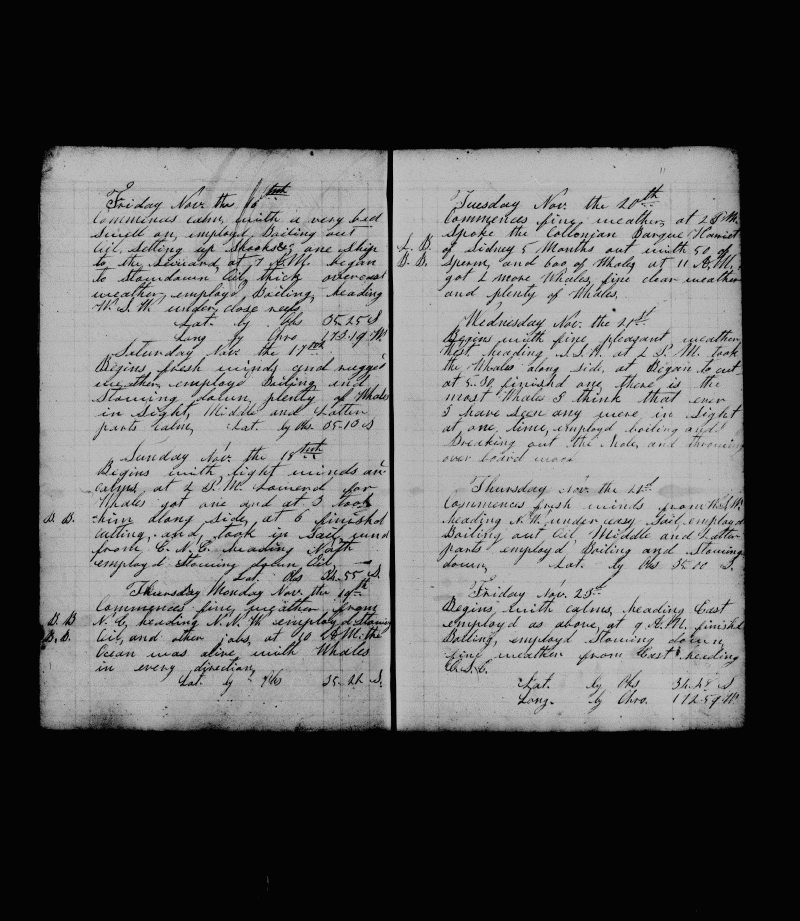 Friday Nov. the 16th
Commences calm, with a very bad
swell on, employd Boiling out
Oil, Setting up Shooks &c, one Ship
to the Leeward, at 7 A.M. began
to Stowdown Oil, thick overcast
weather, employd Boiling, heading
W.S.W. under close reefs,
Lat. by Obs 35-25 S
Long by Chro 173-19 W
Saturday Nov. the 17th
Begins fresh winds, and rugged
weather, employd Boiling, and
Stowing down, plenty of Whales
in Sight, Middle and Latter
parts calm, Lat. by Obs 35-10 S
Sunday Nov. the 18th
Begins with light winds an
calms, at 2 P.M. Lowered for
Whales got one and at 3 took
him along Side, at 6 finished
B. B.
cutting, and took in Sail, wind
from E.N.E. heading North
employd Stowing down Oil,
Lat. Obs 34-55 S.
Thursday Monday Nov. the 19th
Commences fine, weather, from
N.E., heading N.N.W employd Stowing
B. B
Oil, and other jobs, at 10 A.M. the
B. B.
Ocean was alive with Whales
in every direction,
Lat. by Obs 35-22 S.
Tuesday Nov. the 20th
Commences fine, weather, at 2 P.M.
Spoke the Collonian Barque
of Sidney 5 Months out with 50 of
B.
Sperm, and 600 of Whales at 11 A.M.
B. B.
got 2 more Whales, fine clear weather
and plenty of Whales.
Wednesday Nov. the 21st
Begins with fine, pleasant weather,
heading, at 2 P.M. took
the Whales along side, at Began to cut
at 5-30 finishd one, there is the
most Whales I think that ever
I have seen any were, in Sight
at one, time, employd boiling and
Breaking out the Hole, and throwing
over board wood
Thursday Nov. the 22nd
Commences fresh winds from
heading N.W. under easy Sail, employd
Boiling out Oil, Middle and Latter
parts employd, Boiling and Stowing
down, Lat. by Obs 35-00 S.
Friday Nov. 23rd
Begins, with calms, heading East
employd as above, at 9 A.M. finished
Boiling, employd Stowing down,
fine weather from East heading
E.S.E.
Lat. by Obs 34-28 S
Long. by Chro. 172-59 W